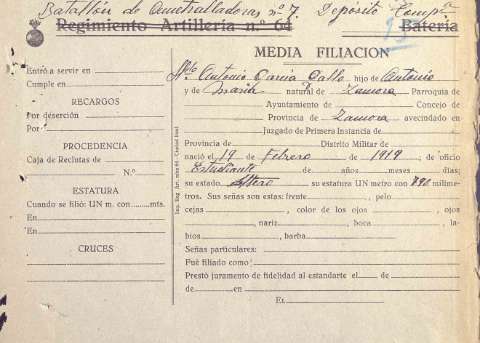 Batallón de Ametralladoras nº 7. Depósito Compª
Regimiento Artillería n.º 64 Batería
15
MEDIA FILIACION
Entró a servir en
Cumple en
RECARGOS
Por deserción
Por
PROCEDENCIA
Caja de Reclutas de
N.º
ESTATURA
Cuando se filió: UN m. con mts.
En
En
CRUCES
Imp. Eng. Art. núm 64 - Ciudad Real
Antonio García Gallo hijo de Antonio
y de María natural de Zamora Parroquia de
Ayuntamiento de Concejo de
Provincia de Zamora avecindado en
Juzgado de Primera Instancia de
Provincia de Distrito Militar de
nació el 19 de Febrero de 1919, de oficio
Estudiante de años, meses días;
su estado Soltero su estatura UN metro con 790 milíme-
tros. Sus señas son estas: frente , pelo
cejas , color de los ojos , ojos
, nariz , boca , la-
bios , barba
Señas particulares:
Fué filiado como:
Prestó juramento de fidelidad al estandarte el de
de en
El